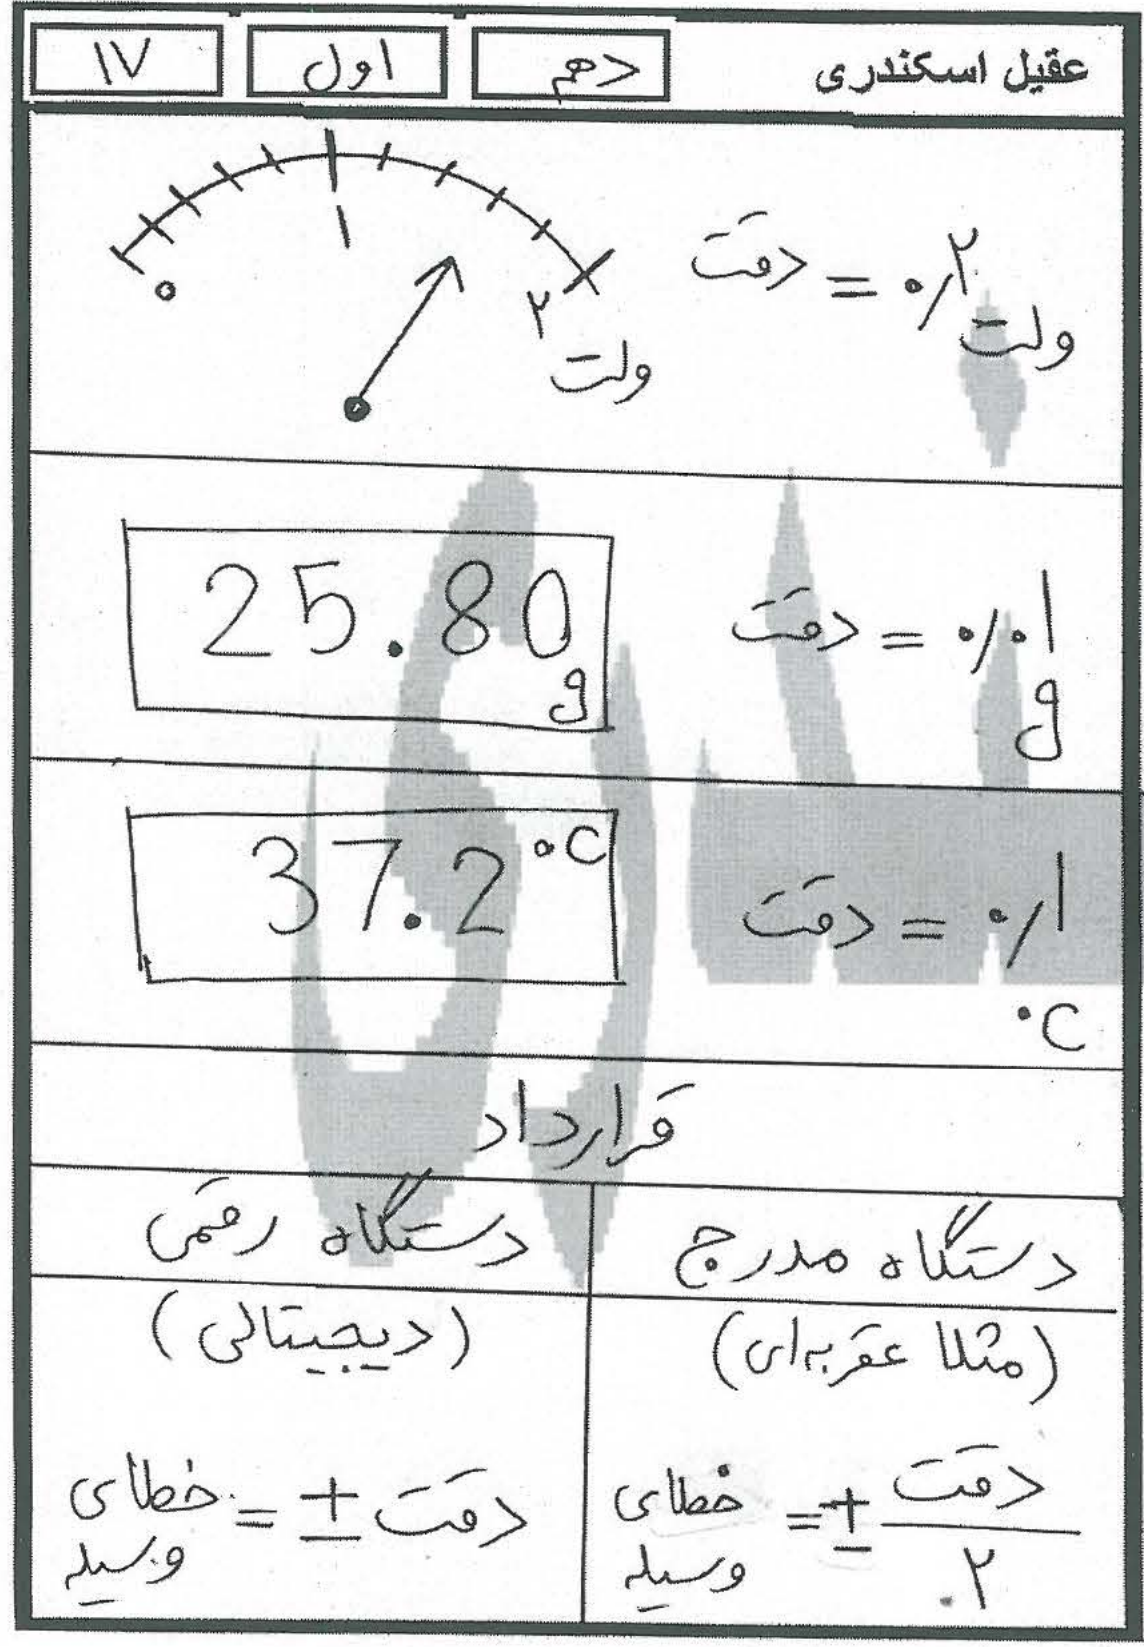 عقیل اسکندری
دهم
اول
۱۷
۰
۱
۲
ولت
دقت = ۰٫۲
ولت
25.80
g
دقت = ۰٫۰۱
g
37.2 °C
دقت = ۰٫۱
°C
قرارداد
دستگاه مدرج
دستگاه رقمی
(مثلا عقربه‌ای)
(دیجیتالی)
خطای وسیله = ± دقت / ۲
خطای وسیله = ± دقت